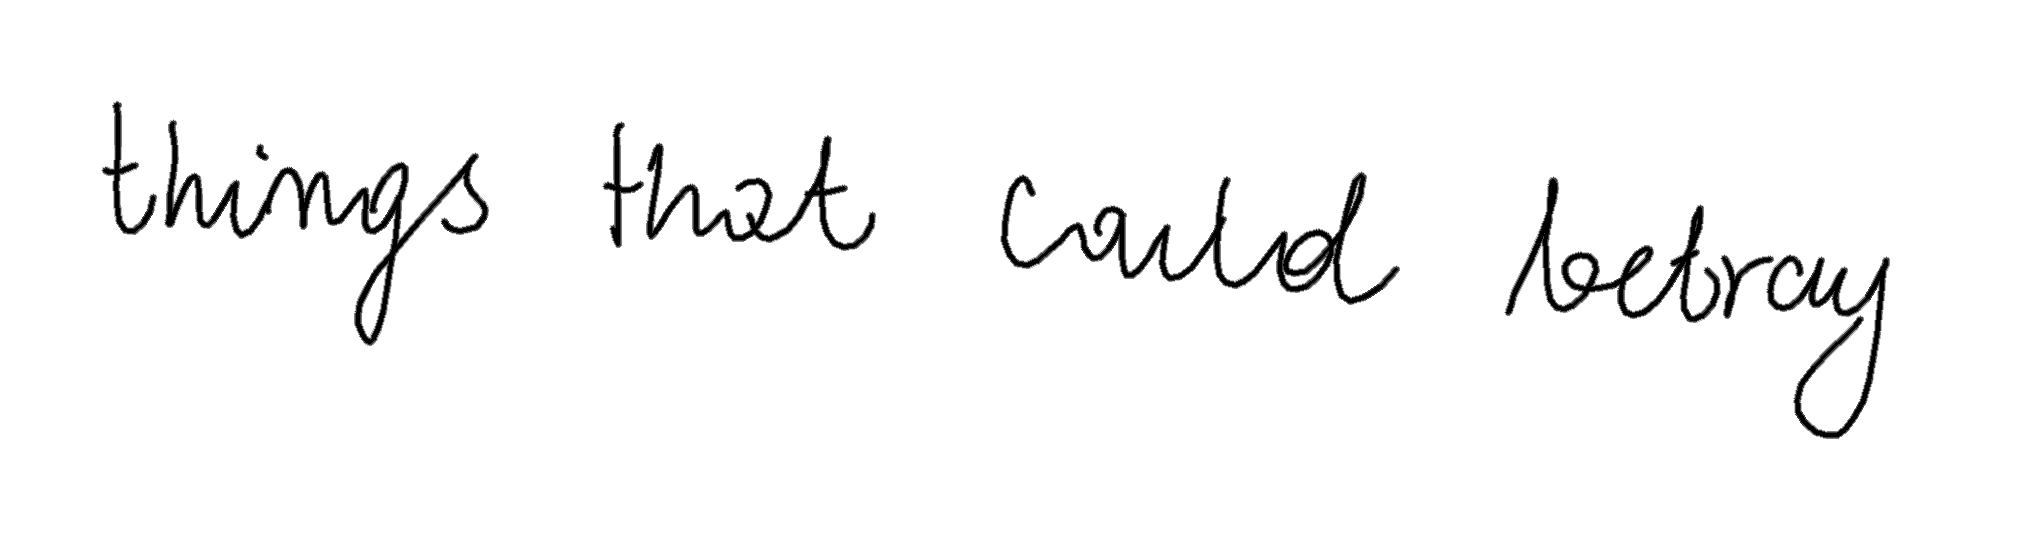 things that could betray